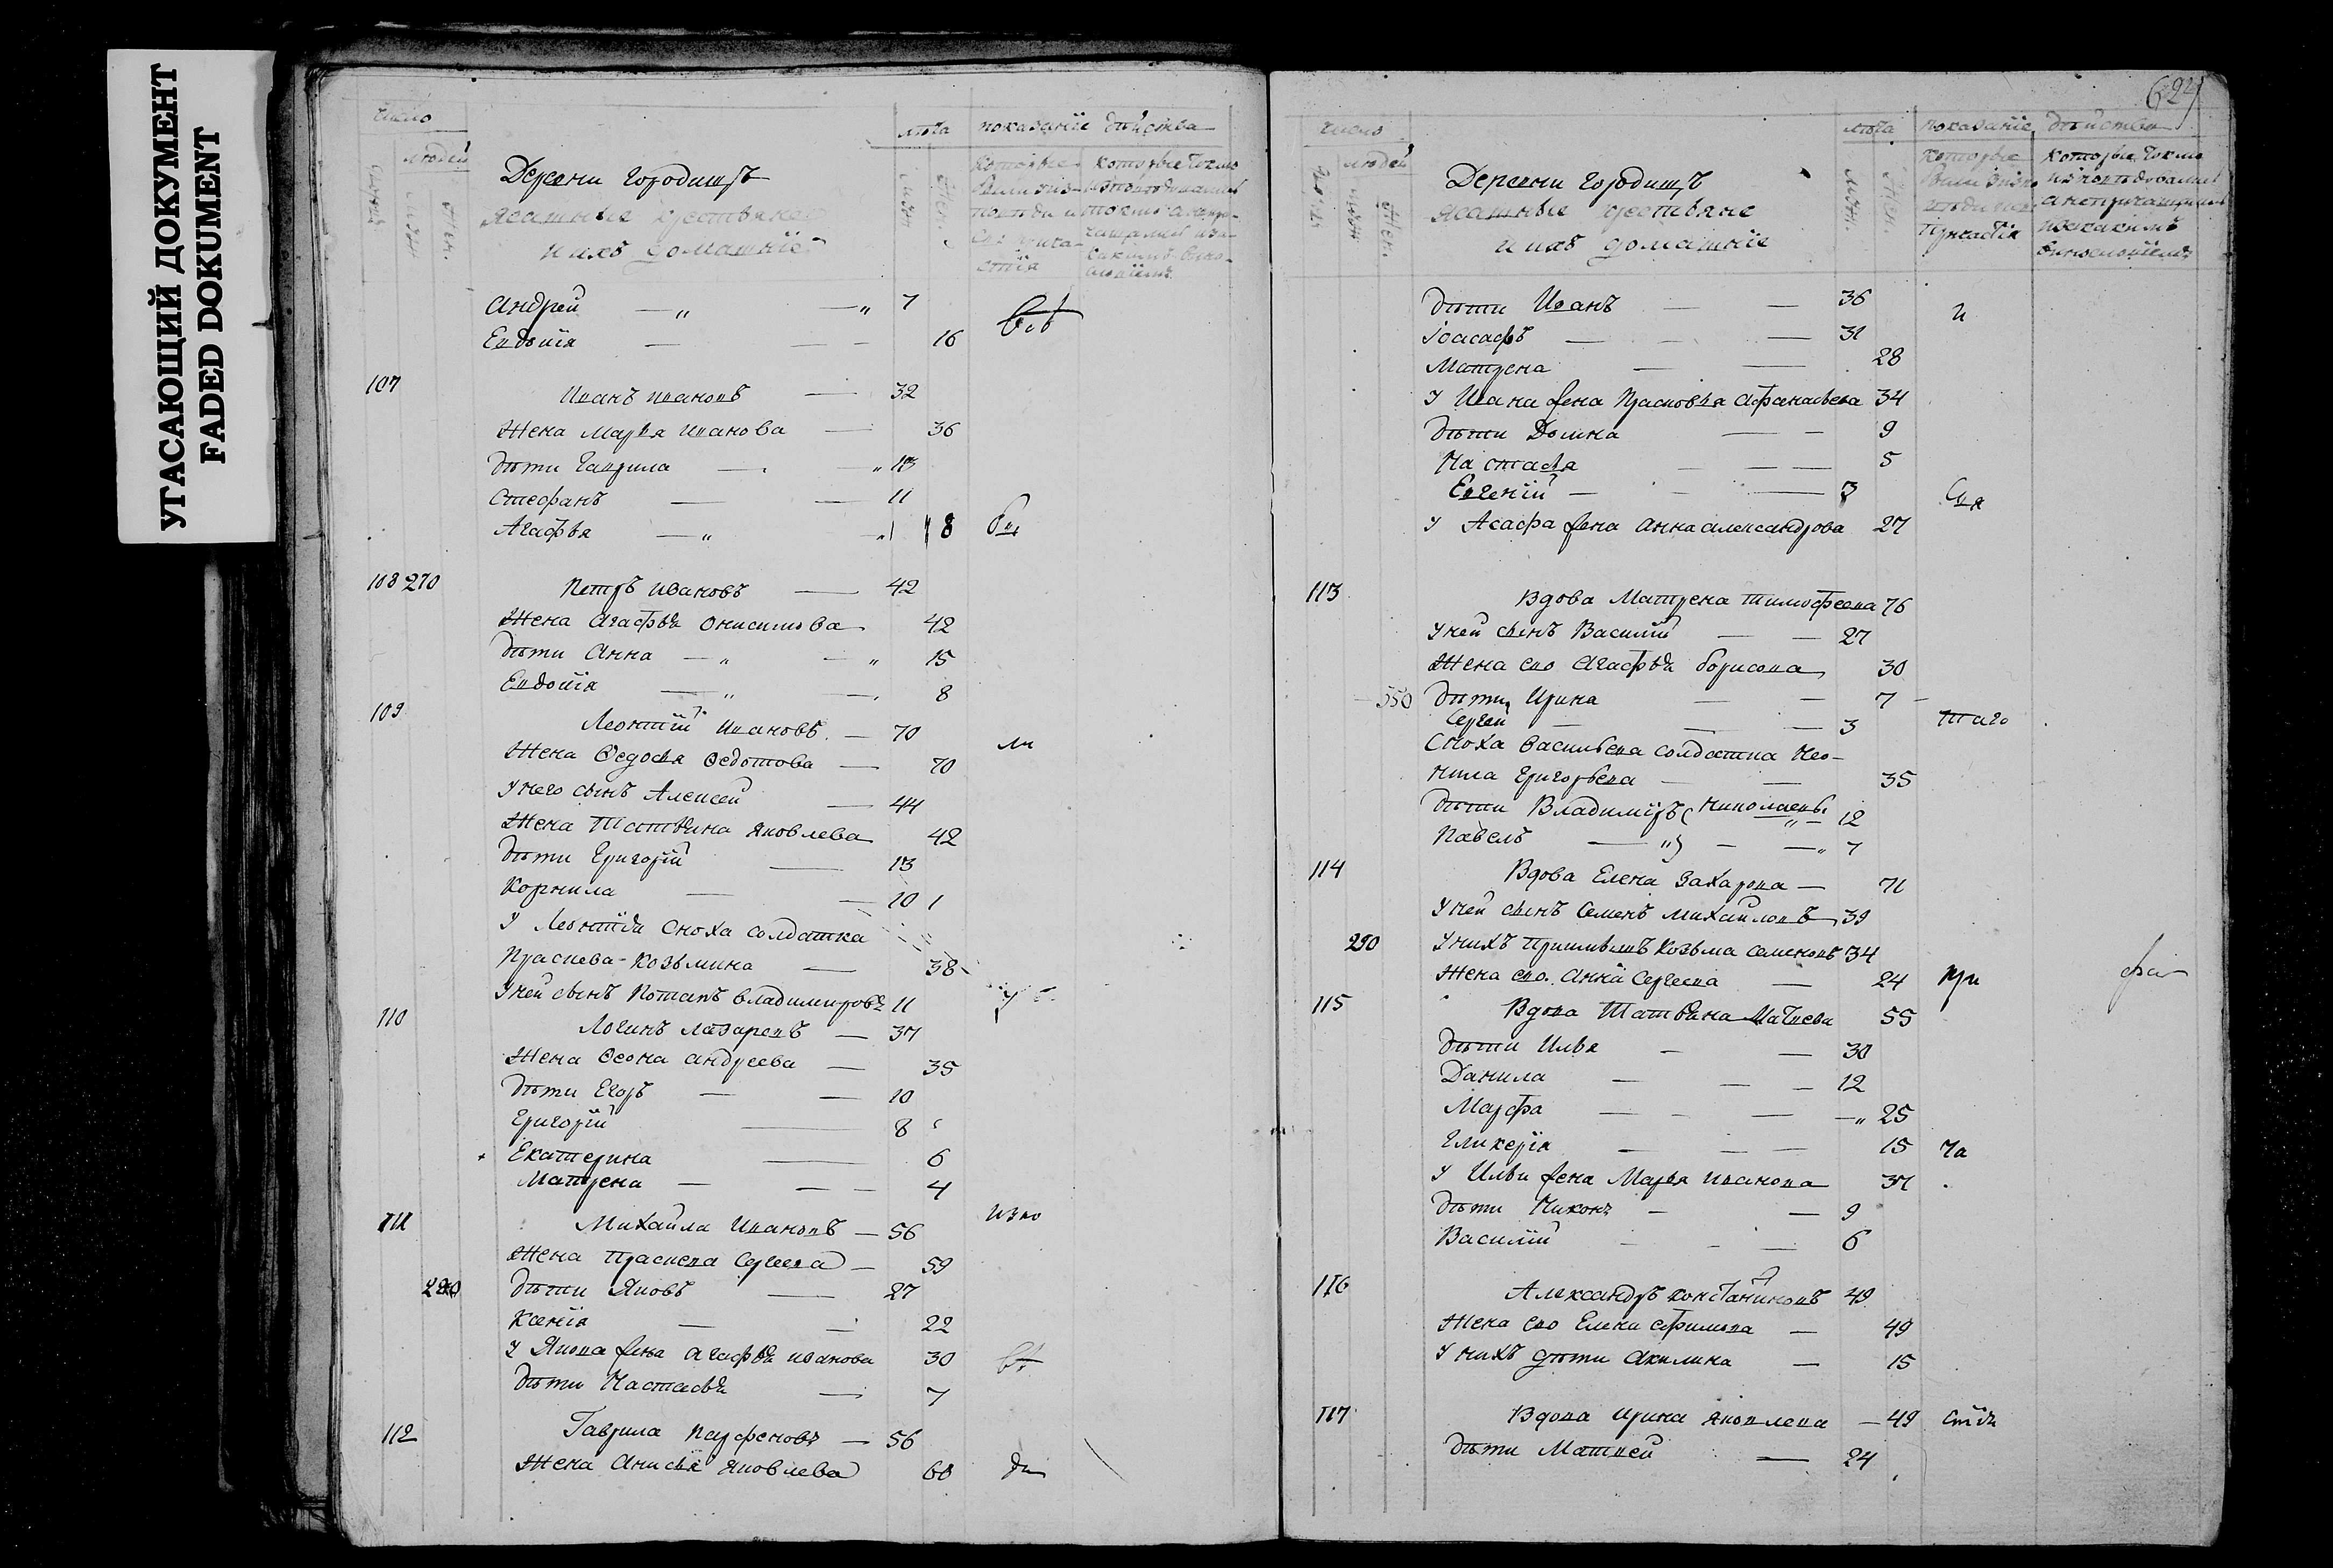 УГАСАЮЩИЙ ДОКУМЕНТ
FADED DOKUMENT
число
людей
муж
жен.
лѣта
муж
жен.
показанїе дѣйства
Деревни Городищъ
Ясашныя крестьяне
и ихъ домашнїе
которые
были
у испо-
вѣди и
которые токмо
исповѣдались
Андрей — 7
Евдокїя — 16
107
Иванъ Ивановъ — 32
Жена Марья Иванова — 36
Дѣти Гаврила — 13
Стефанъ — 11
Агафья — 8
108 270
Петръ Ивановъ — 42
Жена Агафья Онисимова 42
Дѣти Анна — 15
Евдокїя — 8
109
Леонтїй Ивановъ — 70
ли
Жена Ѳедосья Ѳедотова — 70
У него сынъ Алексей — 44
Жена Татьяна Яковлева 42
Дѣти Григорїй — 13
Корнила — 10
У Леонтїя сноха солдатка
Прасковья Козьмина — 38
У ней сынъ Потапъ Владимировъ 11
110
Логинъ Лазаревъ — 37
Жена Ѳеона Андреева — 35
Дѣти Егоръ — 10
Григорїй — 8
Екатерина — 6
Матрена — 4
111
Михайла Ивановъ — 56
Жена Праскева Сергеева — 59
Дѣти Яковъ — 27
Ксенїя — 22
У Якова жена Агафья Иванова 30
Дѣти Настасья — 7
112
Гаврила Парфеновъ — 56
Жена Анисья Яковлева 60
624
число
людей
муж
жен.
лѣта
муж.
жен.
показанїе дѣйства
Деревни Городищъ
Ясашные крестьяне
и ихъ домашнїе
которые
были
причастїя
которые токмо
исповѣдовались
а не причащались
Дѣти Иванъ — 36
и
Іоасафъ — 31
Матрена — 28
У Ивана жена Прасковья Афанасьева 34
Дѣти Домна — 9
Настасья — 5
Евгенїй — 3
У Асафа жена Анна Александрова 27
113
Вдова Матрена Тимофеева 76
У ней сынъ Василїй — 27
Жена ево Агафья Борисова 30
350 Дѣти Ирина — 7
Сергей — 3
таго
Сноха Васильева солдатка Нео-
нила Григорьева — 35
Дѣти Владимїръ Николаевы 12
Павелъ — 7
114
Вдова Елена Захарова — 71
У ней сынъ Семенъ Михайловъ 39
290 У нихъ Козьма Семеновъ 34
Жена ево Анна Сергеева — 24
при
115
Вдова Татьяна Матвева 55
Дѣти Илья — 30
Данила — 12
Марфа — 25
Гликерїя — 15
ча
У Ильи жена Марья Иванова 37
Дѣти Никонъ — 9
Василїй — 6
116
Александръ Константиновъ 49
Жена ево Елена Ефимова — 49
У нихъ дѣти Акилина — 15
117
Вдова Ирина Яковлева — 49
стїя
Дѣти Матвей — 24